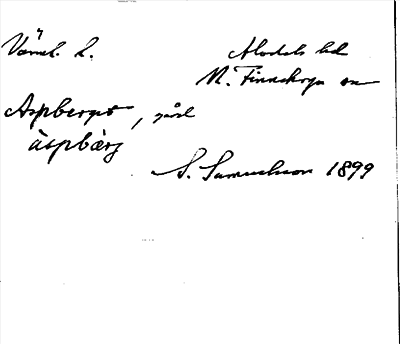 Värml. l.
Älvdals hd
N. Finnskoga sn
Aspberget, gård
àspbàrj
S. Samuelsson 1899